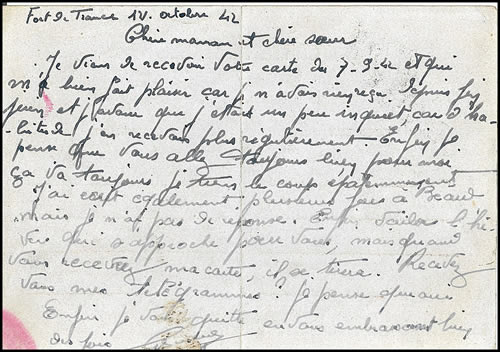 Fort de France 12. octobre 42
Chère maman et chère sœur
Je viens de recevoir votre carte du 7-9-42 et qui
m'a bien fait plaisir car je n'avais rien reçu depuis
et j'avoue que j'étais un peu inquiet, car d'ha-
bitude j'en recevais plus régulièrement. Enfin je
pense que vous allez toujours bien, pour moi
ça va toujours je tiens le coup épatamment
J'ai écrit également plusieurs fois à
mais je n'ai pas de réponse. Enfin voilà l'hi-
ver qui s'approche pour vous, mais quand
vous recevrez ma carte, il se tirera. Recevez
vous mes télégrammes? Je pense que oui
Enfin je vous quitte en vous embrassant bien
des fois